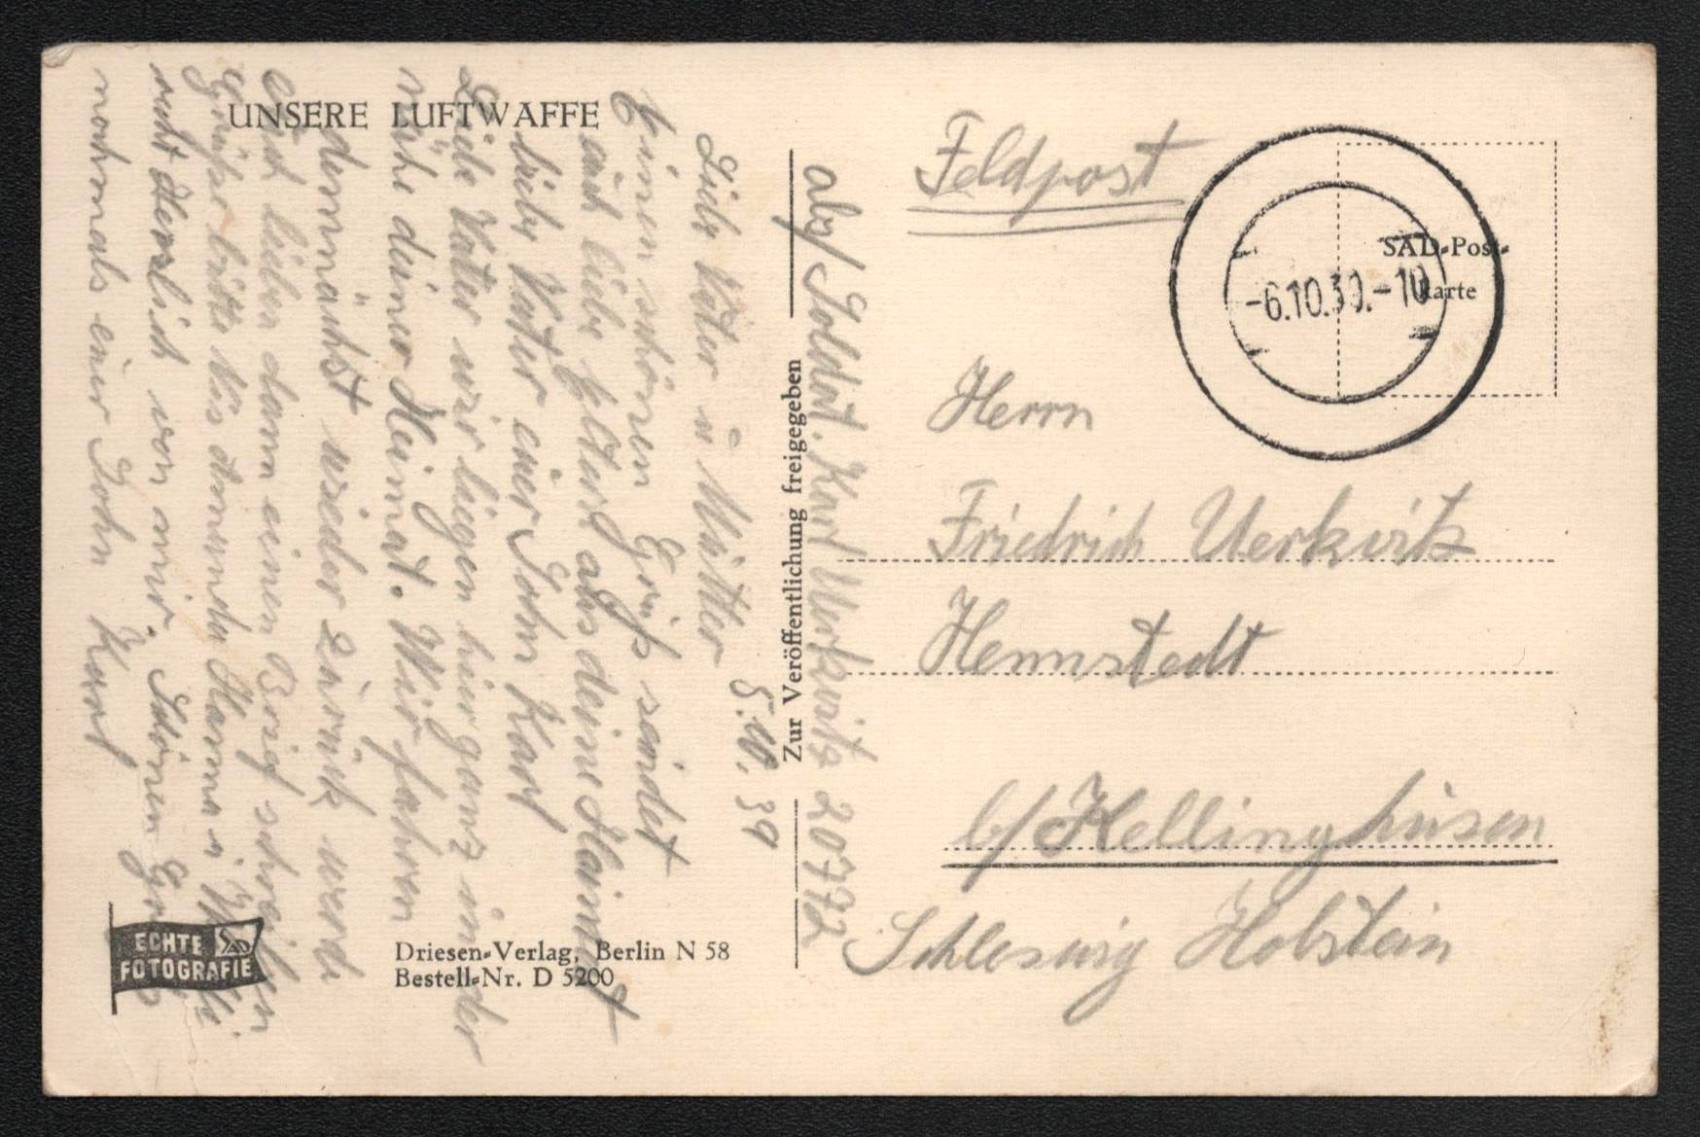 UNSERE LUFTWAFFE
5.10.39
Liebe Vater u Mutter
Einen schönen Gruß sendet
euch liebe Eltern aus deine Heimat
lieber Vater euer Sohn Karl
Liebe Vater wir liegen hier ganz in der
nähe deiner Heimat. Wir fahren
demnächst wieder zurück werd
euch lieben dann einen Brief schreiben
grüßer bitte bis Hanna
recht Herzlich von mir. Schönen Gruß
nochmals euer Sohn Karl
ECHTE
FOTOGRAFIE
Driesen-Verlag, Berlin N 58
Bestell-Nr. D 5200
Zur Veröffentlichung freigegeben
abs/ Soldat. Karl Uerkvitz 20772
Feldpost
SAD-Post-
karte
-6.10.39.-10
Herrn
Friedrich Uerkvitz
Hennstedt
b/ Kellinghusen
Schleswig Holstein